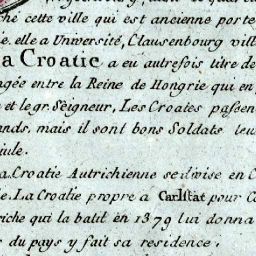 ché cette ville qui est ancienne porte
ie. elle a Université, Clausenbourg vill
a Croatie a eu autrefois titre de
agée entre la Reine de Hongrie qui en p
et le gr. Seigneur, Les Croates passen
ands, mais il sont bons Soldats leu
iule.
a. Croatie Autrichienne se divise en C
e. La Croatie propre a Carlstat pour C
riche qui la batit en 1379 lui donna
du pays y fait sa residence.